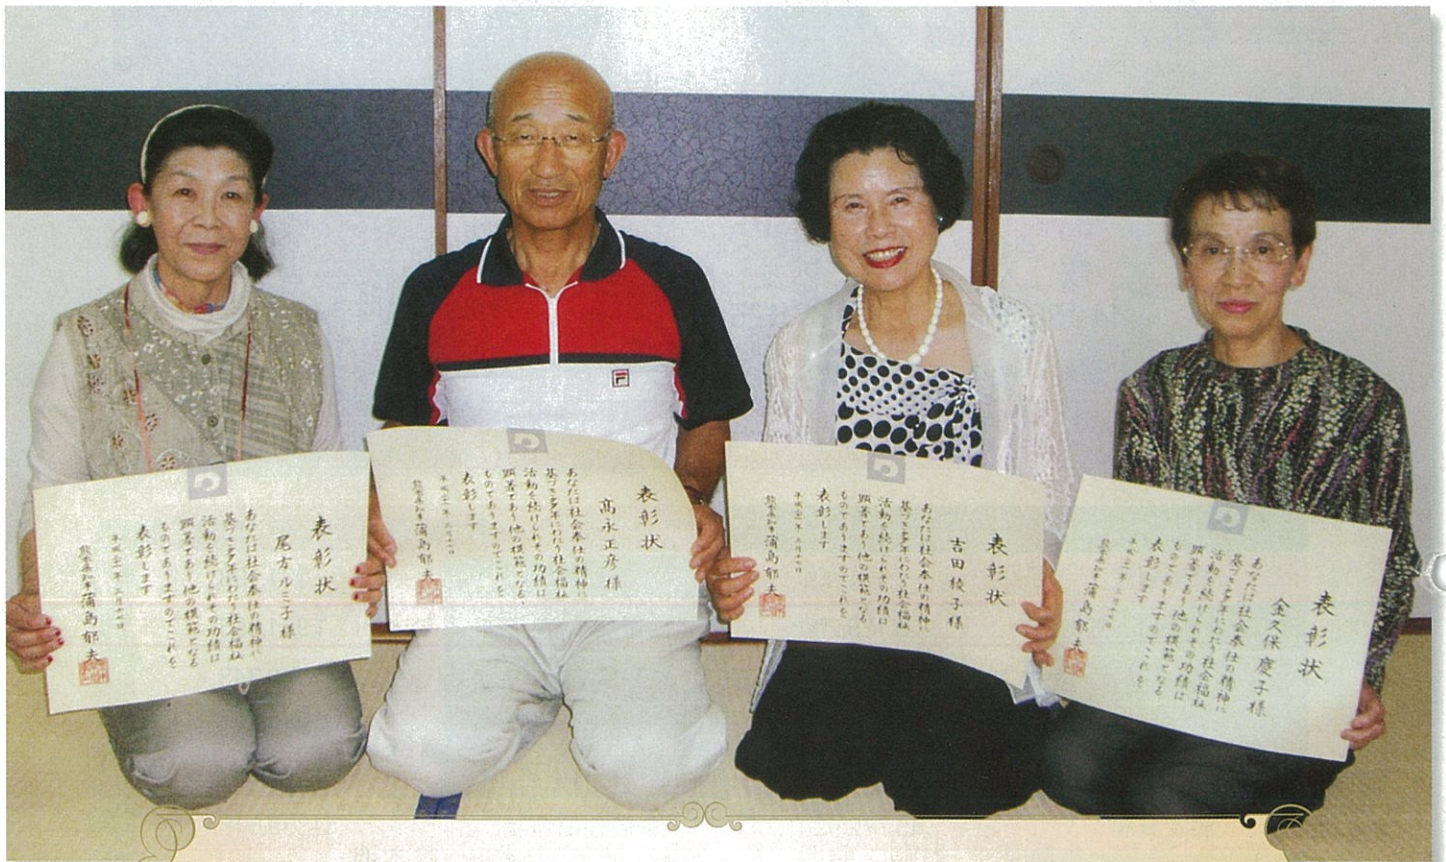 表彰状
尾方ルミ子様
あなたは社会奉仕の精神に
基づき多年にわたり社会福祉
活動を続けられその功績は
顕著であり他の模範となる
ものでありますのでこれを
表彰します
平成二十一年三月十七日
熊本県知事 蒲島郁夫
表彰状
髙永正彦様
あなたは社会奉仕の精神に
基づき多年にわたり社会福祉
活動を続けられその功績は
顕著であり他の模範となる
ものでありますのでこれを
表彰します
熊本県知事 蒲島郁夫
表彰状
吉田稜子様
あなたは社会奉仕の精神に
基づき多年にわたり社会福祉
活動を続けられその功績は
顕著であり他の模範となる
ものでありますのでこれを
表彰します
熊本県知事 蒲島郁夫
表彰状
金久保慶子様
あなたは社会奉仕の精神に
基づき多年にわたり社会福祉
活動を続けられその功績は
顕著であり他の模範となる
ものでありますのでこれを
表彰します
熊本県知事 蒲島郁夫